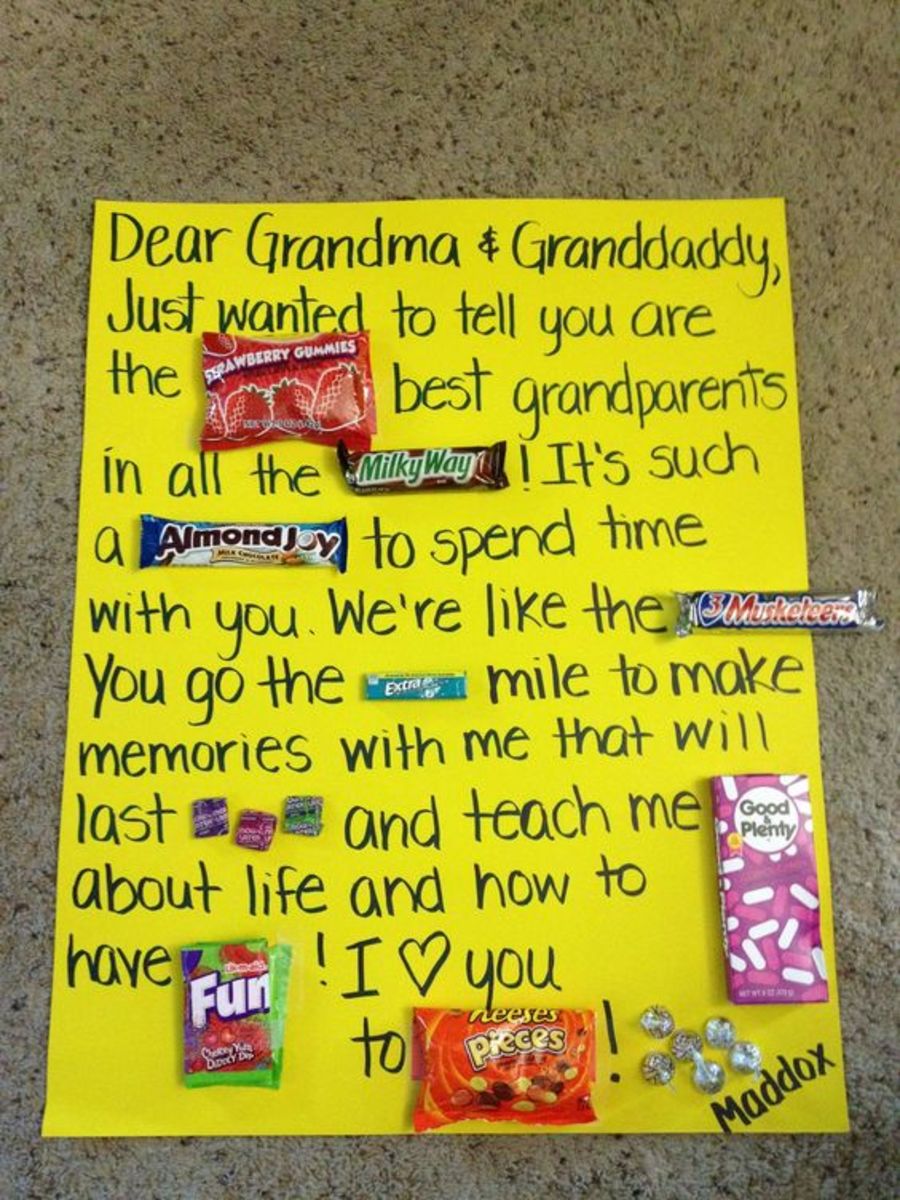 Dear Grandma & Granddaddy,
Just wanted to tell you are
the STRAWBERRY GUMMIES best grandparents
in all the Milky Way ! It's such
a Almond Joy MILK CHOCOLATE to spend time
with you. We're like the 3 Musketeers
You go the Extra mile to make
memories with me that will
last and teach me Good & Plenty
about life and how to
have Fun ! I ♡ you
to Reese's Pieces !
Maddox